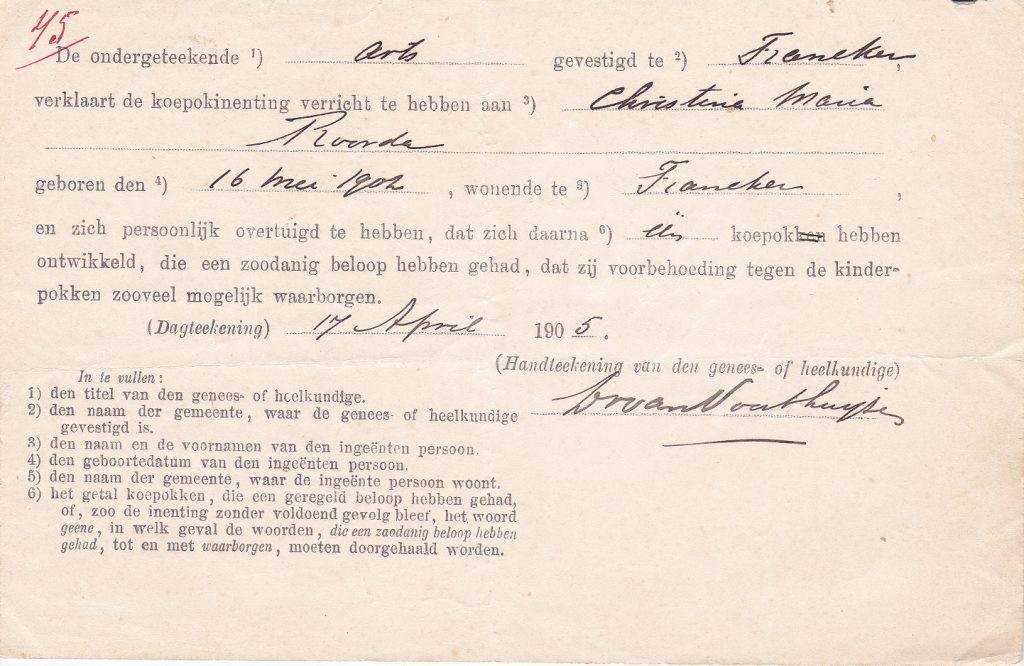 45
De ondergeteekende 1) arts gevestigd te 2) Franeker,
verklaart de koepokinenting verricht te hebben aan 3) Christina Maria
Roorda
geboren den 4) 16 Mei 1902, wonende te 5) Franeker,
en zich persoonlijk overtuigd te hebben, dat zich daarna 6) één koepokken hebben
ontwikkeld, die een zoodanig beloop hebben gehad, dat zij voorbehoeding tegen de kinder-
pokken zooveel mogelijk waarborgen.
(Dagteekening) 17 April 1905.
(Handteekening van den genees- of heelkundige)
In te vullen:
1) den titel van den genees- of heelkundige.
2) den naam der gemeente, waar de genees- of heelkundige
gevestigd is.
3) den naam en de voornamen van den ingeënten persoon.
4) den geboortedatum van den ingeënten persoon.
5) den naam der gemeente, waar de ingeënte persoon woont.
6) het getal koepokken, die een geregeld beloop hebben gehad,
of, zoo de inenting zonder voldoend gevolg bleef, het woord
geene, in welk geval de woorden, die een zaodanig beloop hebben
gehad, tot en met waarborgen, moeten doorgehaald worden.